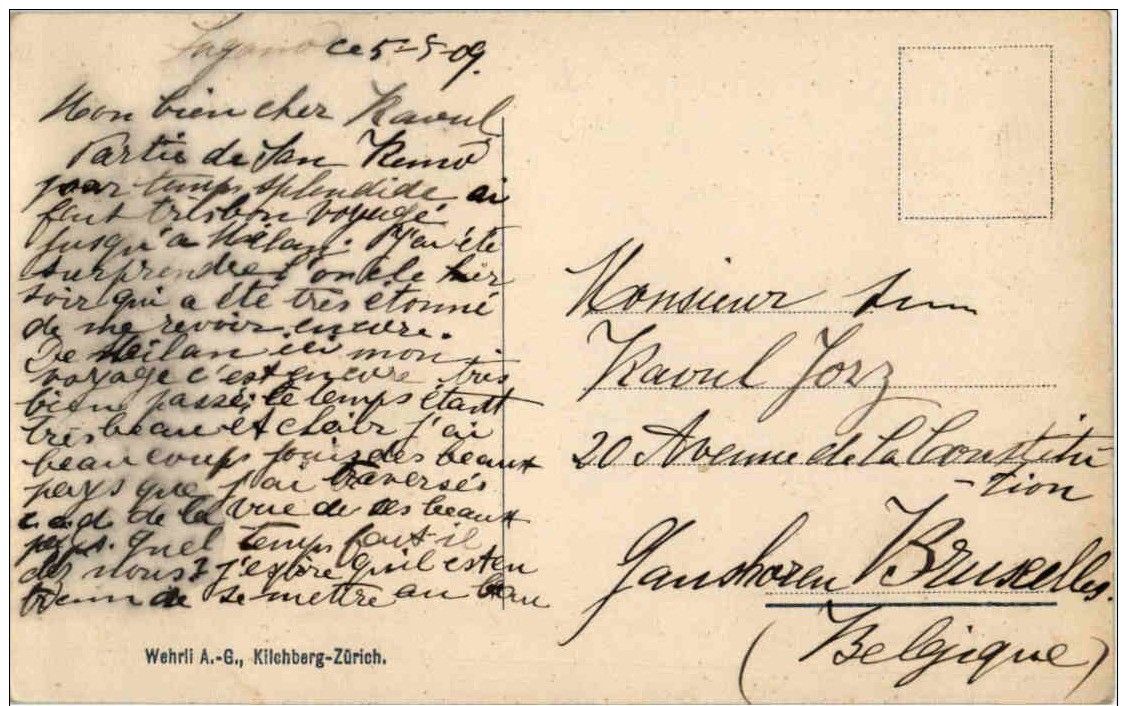 Lugano ce 5-5-09.
Mon bien cher Raoul
Partie de San Remo
par temps splendide ai
fait très bon voyage
jusqu'à Milan. J'ai été
surprendre l'oncle hier
soir qui a été très étonné
de me revoir encore.
De Milan ici mon
voyage c'est encore très
bien passé, le temps étant
très beau et clair j'ai
beaucoups jouis des beaux
pays que j'ai traversés
c.a.d. de la vue de ces beaux
pays. Quel temps fait-il
chez nous? j'espère qu'il est en
train de se mettre au beau
Wehrli A.-G., Kilchberg-Zürich.
Monsieur
Raoul Jorz
20 Avenue de la Constitu
-tion
Ganshoren Bruxelles.
(Belgique)